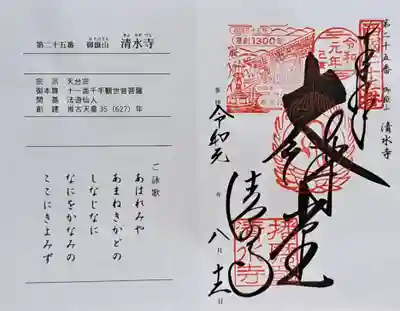 第二十五番 御嶽山 清水寺
みたけさん きよみずでら
宗派 天台宗
御本尊 十一面千手観世音菩薩
開基 法道仙人
創建 推古天皇35(627)年
ご詠歌
あはれみや
あまねきかどの
しなじなに
なにをかなみの
ここにきよみず
第二十五番 御嶽山 清水寺
草創1300年
令和元年
奉拝
大悲堂
清水寺
令和元年 八月 十二日
播州清水寺